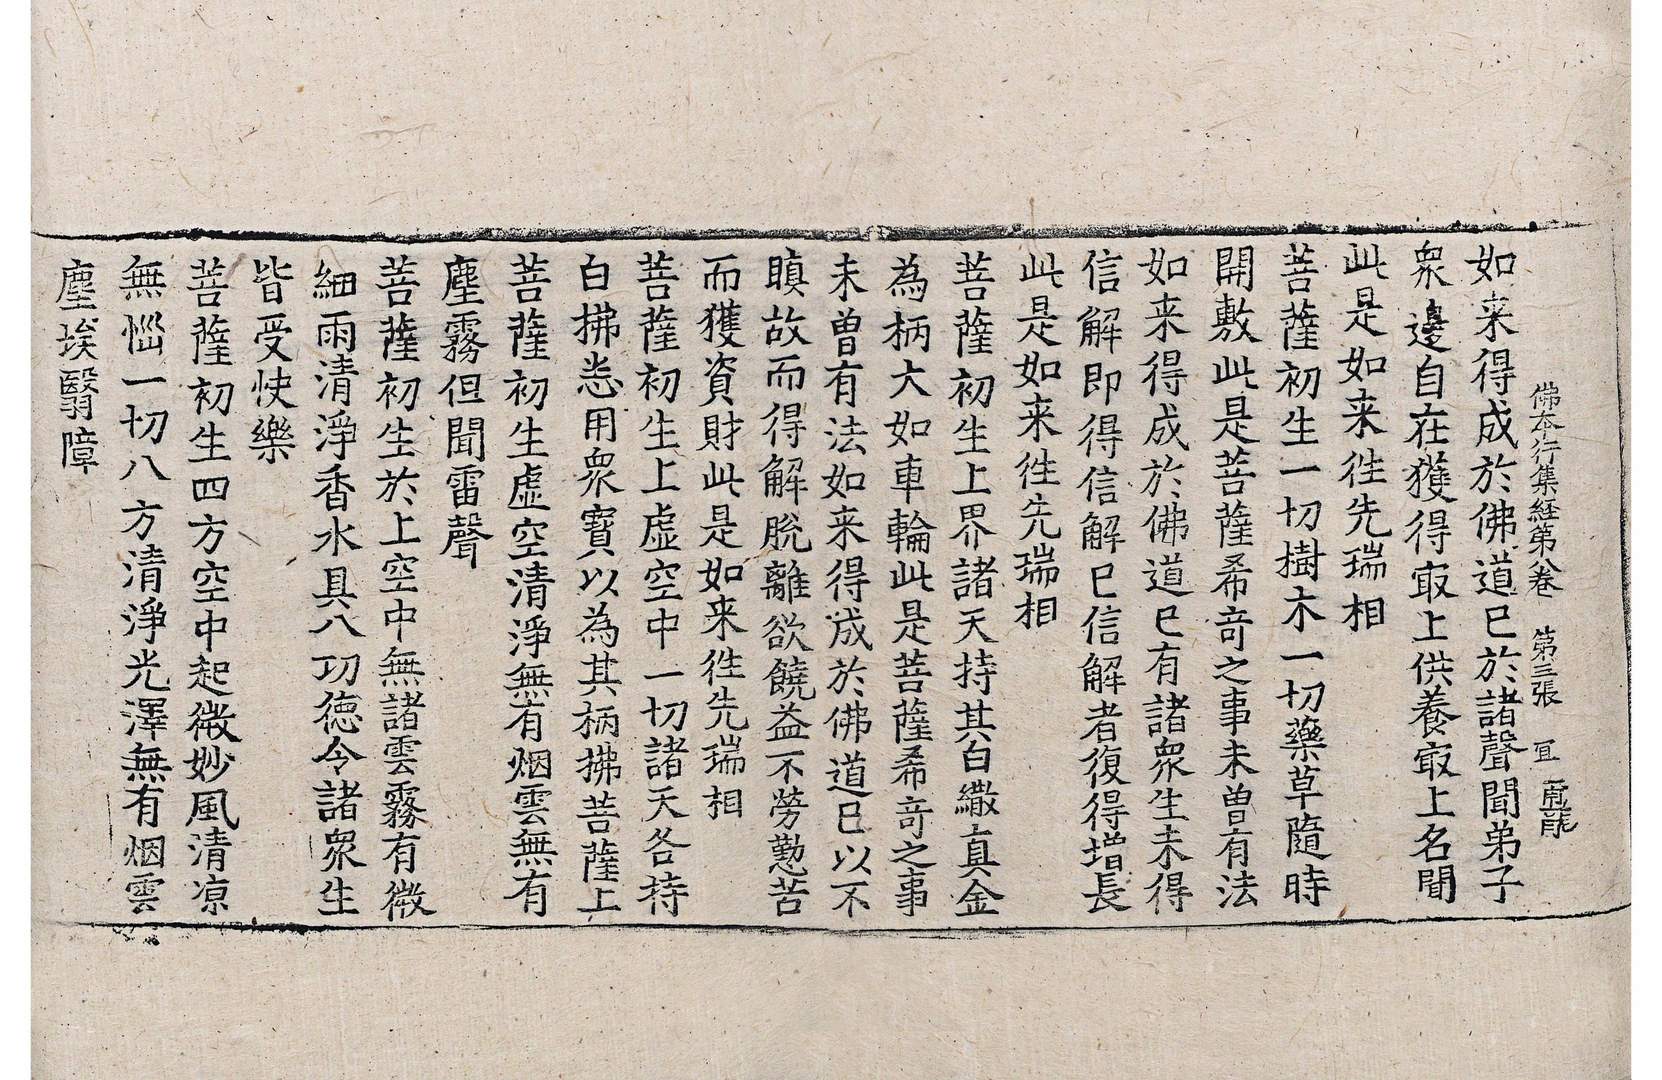 佛本行集経第八巻　第三張　冝　甫龍
如来得成於佛道已於諸聲聞弟子
衆邊自在獲得冣上供養冣上名聞
此是如来徃先瑞相
菩薩初生一切樹木一切藥草隨時
開敷此是菩薩希竒之事未曽有法
如来得成於佛道已有諸衆生未得
信解即得信解已信解者復得增長
此是如来徃先瑞相
菩薩初生上界諸天持其白繖真金
為柄大如車輪此是菩薩希竒之事
未曽有法如来得成於佛道已以不
瞋故而得解脫離欲饒益不勞勤苦
而獲資財此是如来徃先瑞相
菩薩初生上虚空中一切諸天各持
白拂悉用衆寳以為其柄拂菩薩上
菩薩初生虚空清淨無有烟雲無有
塵霧但聞雷聲
菩薩初生於上空中無諸雲霧有微
細雨清淨香水具八功徳令諸衆生
皆受快樂
菩薩初生四方空中起微妙風清凉
無惱一切八方清淨光澤無有烟雲
塵埃翳障